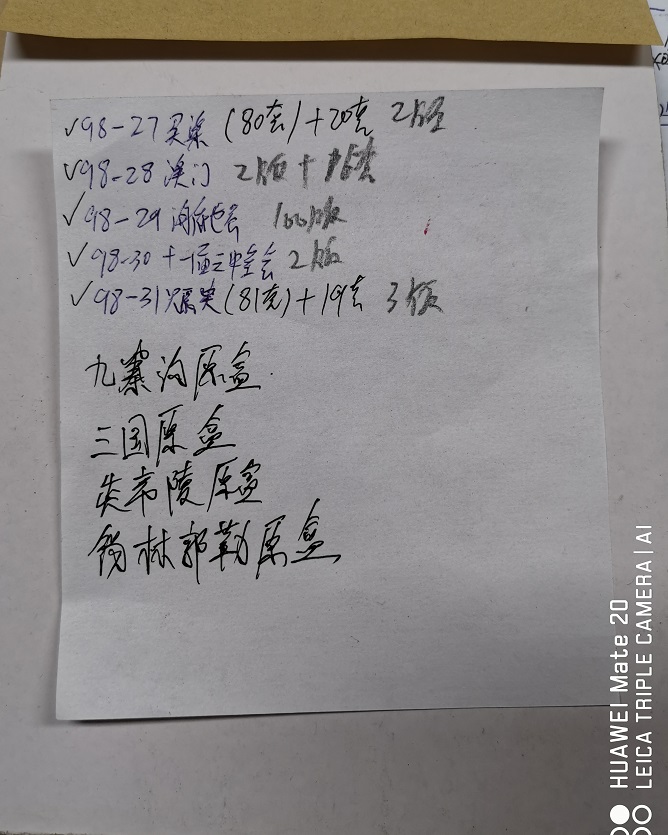 ✓98-27 灵渠 (80套)+20套 2版
✓98-28 澳门 2版+16套
✓98-29 海底世 100版
✓98-30 十一届三中全会 2版
✓98-31 (81套)+19套 3版
九寨沟原盒
三国原盒
炎帝陵原盒
锡林郭勒原盒
HUAWEI Mate 20
LEICA TRIPLE CAMERA | AI